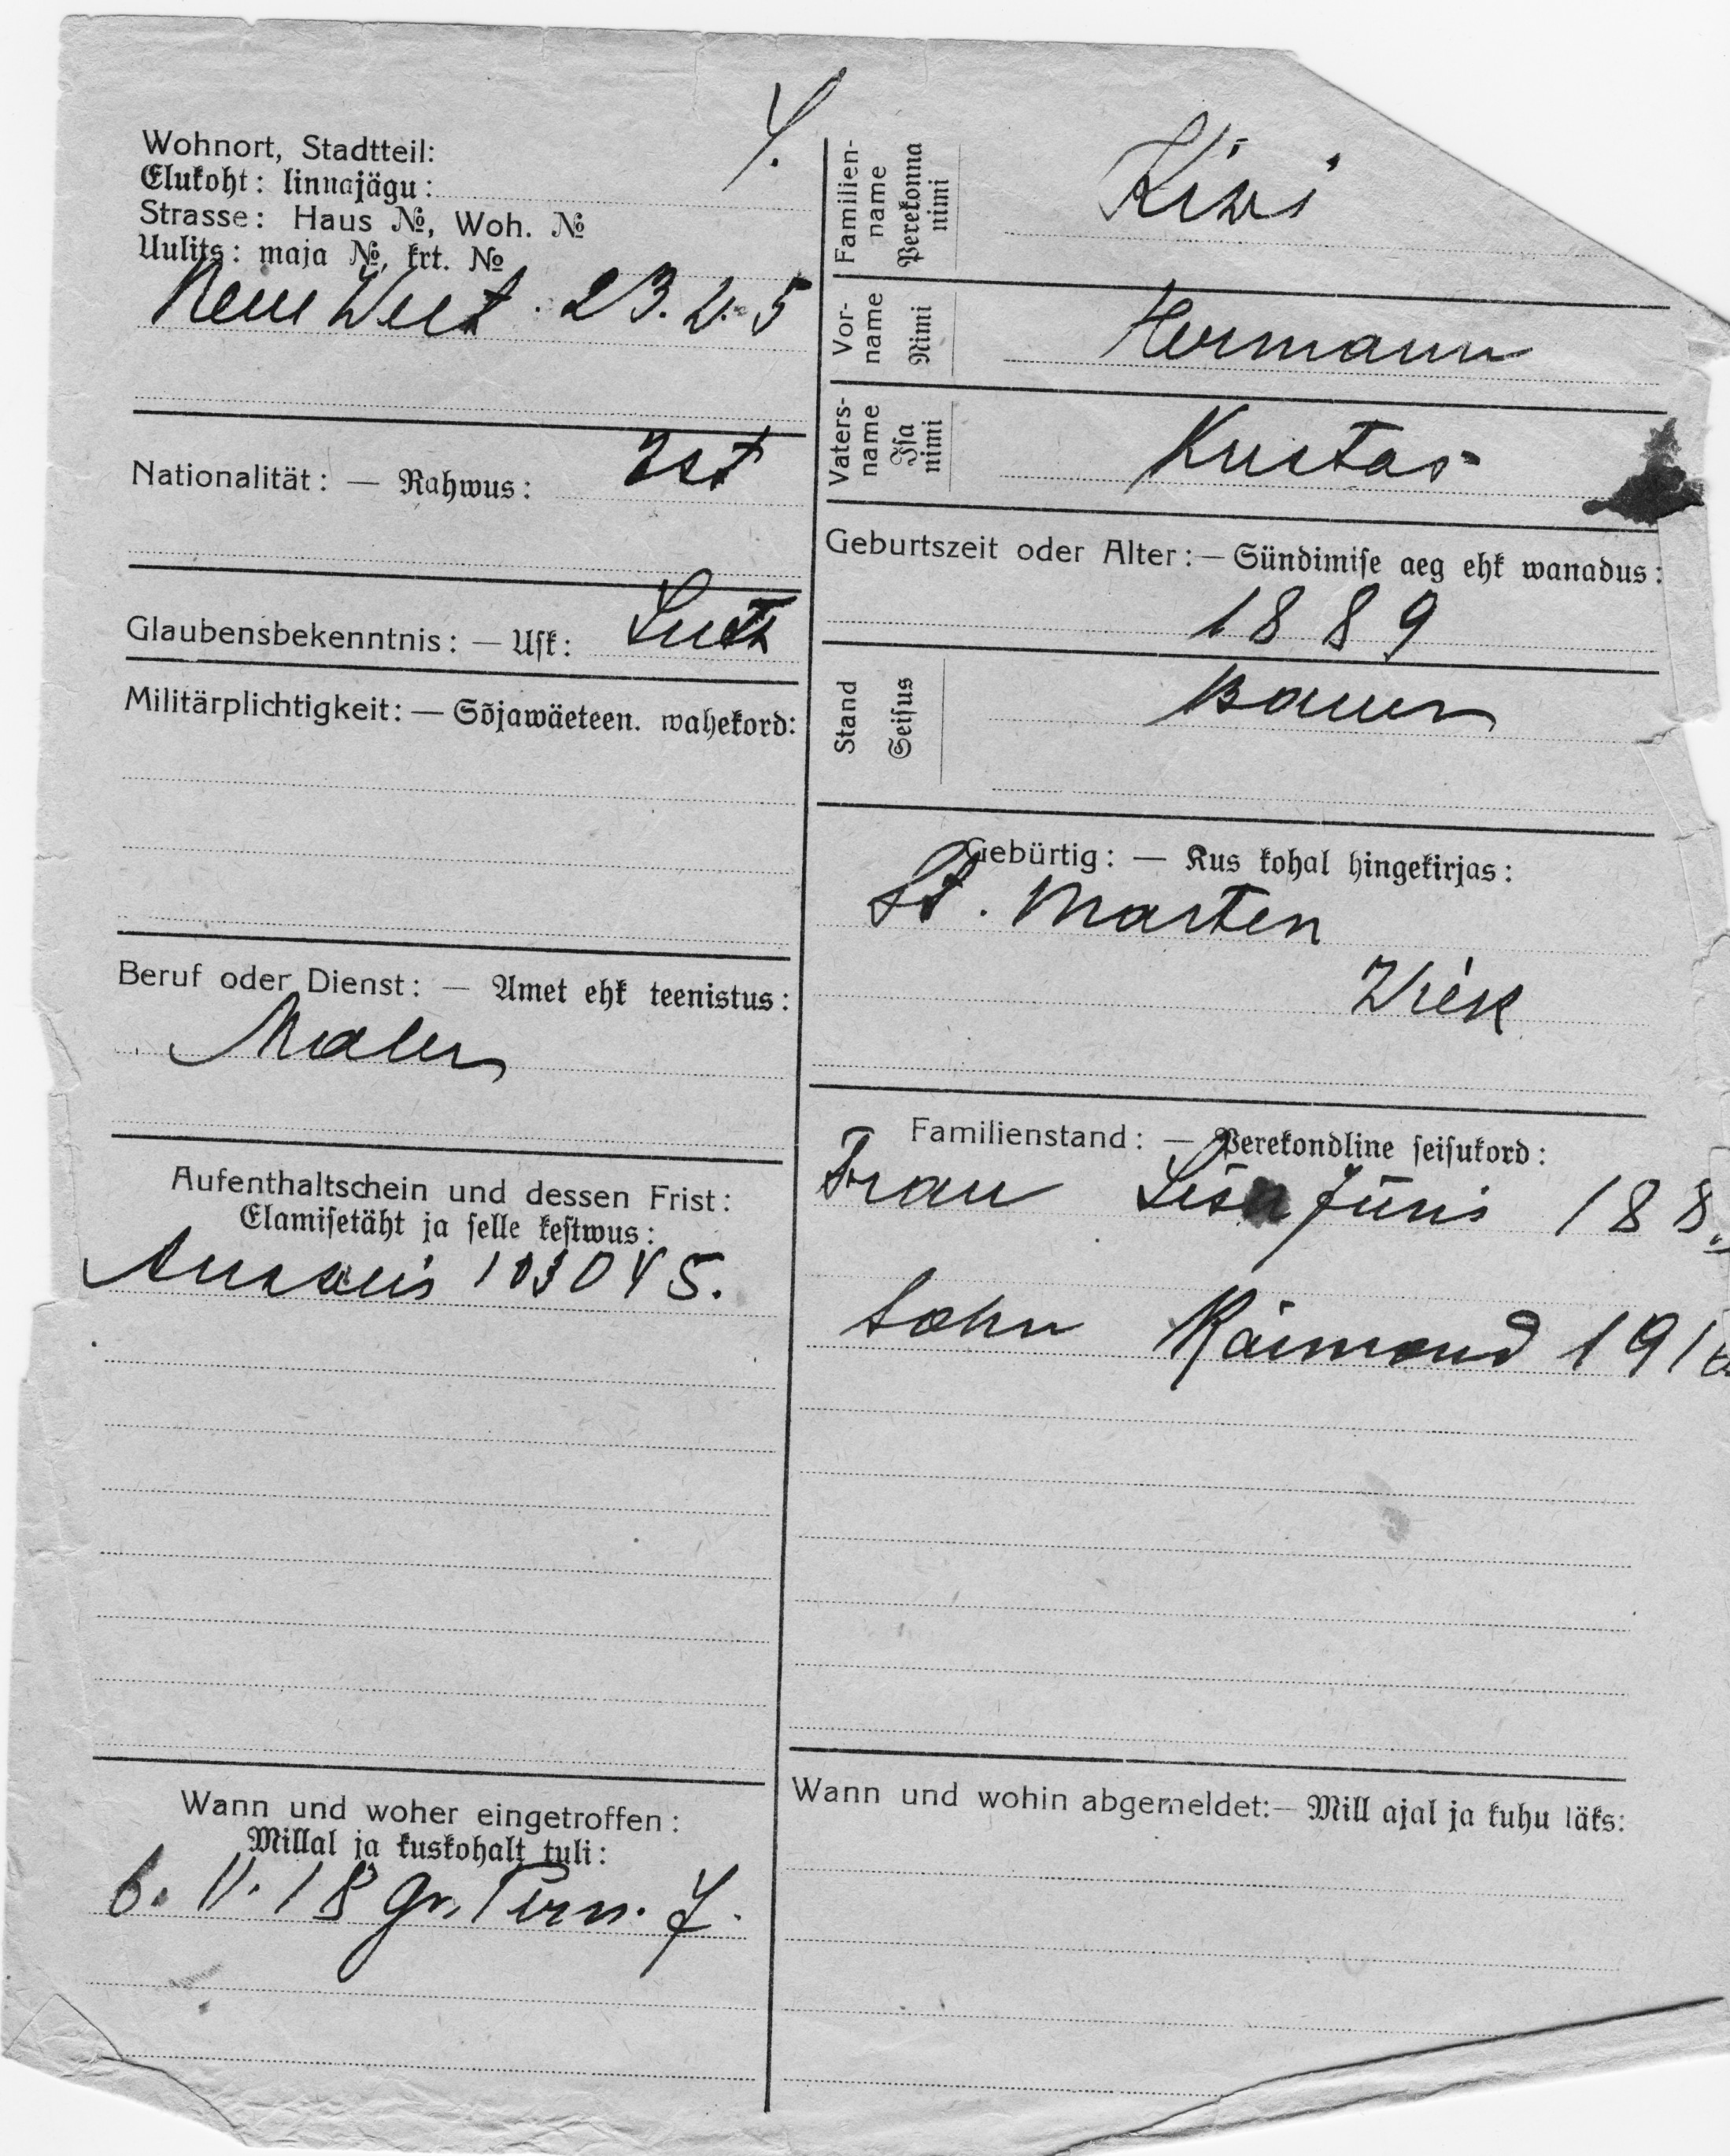 Wohnort, Stadtteil:
Elukoht: linnajägu:
Strasse: Haus №, Woh. №
Uulits: maja №, krt. №
Neue Welt. 23. 5
Nationalität: — Rahwus:
Est
Glaubensbekenntnis: — Usk:
Luth
Militärplichtigkeit: — Sõjawäeteen. wahekord:
Beruf oder Dienst: — Amet ehk teenistus:
Maler
Aufenthaltschein und dessen Frist:
Elamisetäht ja selle kestwus:
Ausweis 103045.
Wann und woher eingetroffen:
Millal ja kuskohalt tuli:
6. 11. 18 gr. Pern. 7.
Familien-
name
Perekonna
nimi
Kiwi
Vor-
name
Nimi
Hermann
Vaters-
name
Isa
nimi
Kustas
Geburtszeit oder Alter: — Sündimise aeg ehk wanadus:
1889
Stand
Seisus
Bauer
Gebürtig: — Kus kohal hingekirjas:
St. Marten
Wiek
Familienstand: — Perekondline seisukord:
Frau Lisa Jüris 188
Sohn Raimond 191
Wann und wohin abgemeldet: — Mill ajal ja kuhu läks: